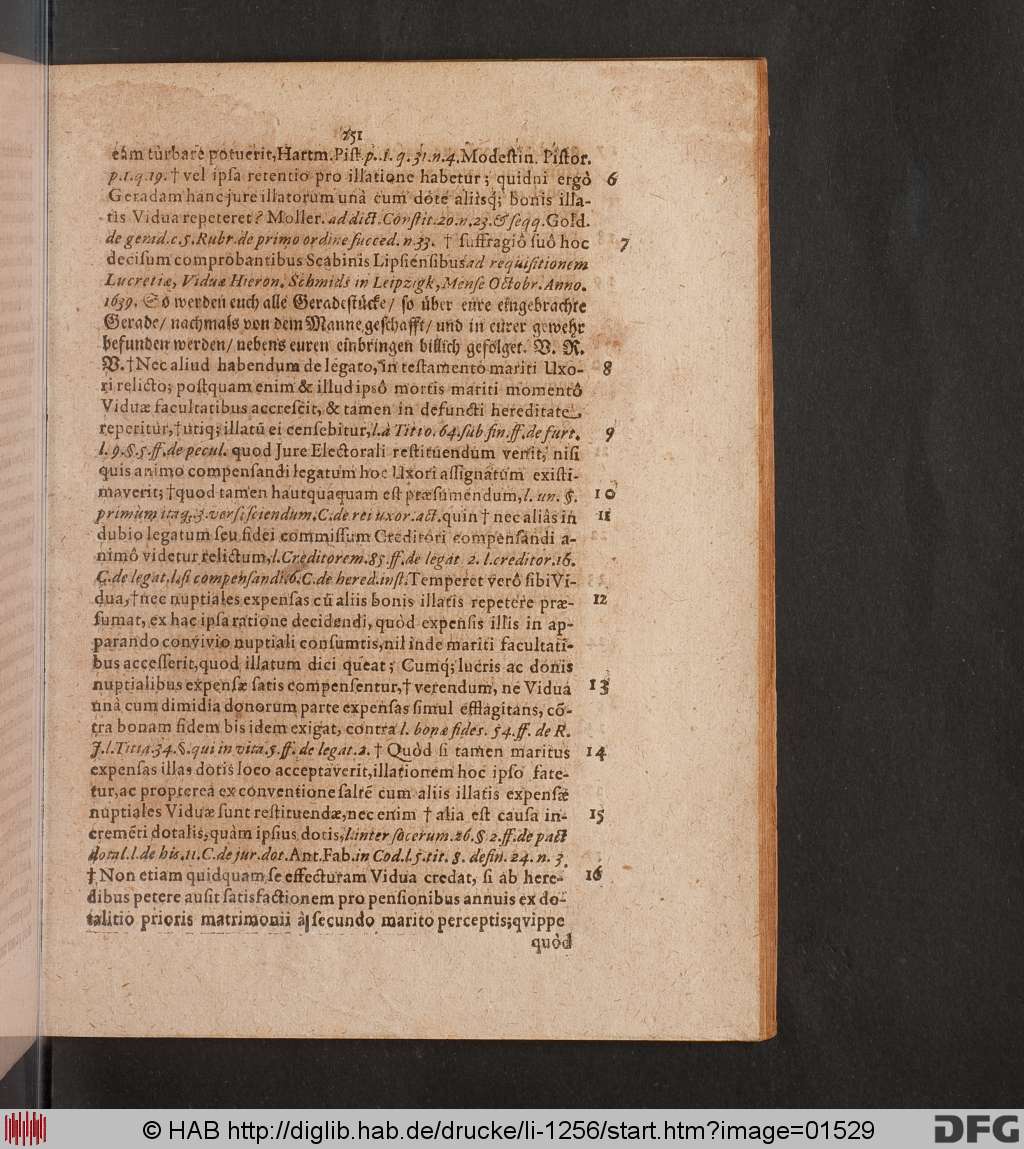 151
eam turbare potuerit, Hartm. Pist. p. 1. q. 31. n. 4. Modestin. Pistor.
p. 1. q. 19. † vel ipsa retentio pro illatione habetur; quidni ergò 6
Geradam hanc jure illatorum unà cum dote aliisq́; bonis illa-
tis Vidua repeteret? Moller. ad dict. Constit. 20. n. 23. & seqq. Gold.
de gerad. c. 5. Rubr. de primo ordine succed. n. 33. † suffragiô suô hoc 7
decisum comprobantibus Scabinis Lipsiensibus ad requisitionem
Lucretiæ, Viduæ Hieron. Schmids in Leipzigk, Mense Octobr. Anno.
1639. So werden euch alle Geradestücke/ so über eure eingebrachte
Gerade/ nachmals von dem Manne geschafft/ und in eurer gewehr
befunden werden/ nebens euren einbringen billich gefolget. V. R.
W. † Nec aliud habendum de legato, in testamento mariti Uxo- 8
ri relicto; postquam enim & illud ipsô mortis mariti momentô
Viduæ facultatibus accrescit, & tamen in defuncti hereditate
reperitur, † utiq; illatū ei censebitur, l. à Titio. 64. sub fin. ff. de furt. 9
l. 9. §. 5. ff. de pecul. quod Jure Electorali restituendum venit, nisi
quis animo compensandi legatum hoc Uxori assignatum existi-
maverit; † quod tamen hautquaquam est præsumendum, l. un. §. 10
primum itaq; 3. vers. sciendum. C. de rei uxor. act. quin † nec aliâs in 11
dubio legatum seu fidei commissum Creditori compensandi a-
nimô videtur relictum, l. Creditorem. 85. ff. de legat. 2. l. creditor. 16.
C. de legat, l. si compensandi. 6. C. de hered. inst. Temperet verô sibi Vi-
dua, † nec nuptiales expensas cū aliis bonis illatis repetere præ- 12
sumat, ex hac ipsa ratione decidendi, quòd expensis illis in ap-
parando convivio nuptiali consumtis, nil inde mariti facultati-
bus accesserit, quod illatum dici queat; Cumq; lucris ac donis
nuptialibus expensæ satis compensentur, † verendum, ne Vidua 13
unà cum dimidia donorum parte expensas simul efflagitans, cō-
tra bonam fidem bis idem exigat, contra l. bonæ fides. 54. ff. de R.
J. l. Titia. 34. §. qui in vita. 5. ff. de legat. 2. † Quòd si tamen maritus 14
expensas illas dotis loco acceptaverit, illationem hoc ipso fate-
tur, ac proptereà ex conventione saltē cum aliis illatis expensæ
nuptiales Viduæ sunt restituendæ, nec enim † alia est causa in- 15
cremēti dotalis, quàm ipsius dotis, l. inter socerum. 26. § 2. ff. de pact
dotal. l. de his. 11. C. de jur. dot. Ant. Fab. in Cod. l. 5. tit. 8. defin. 24. n. 3.
† Non etiam quidquam se effecturam Vidua credat, si ab here- 16
dibus petere ausit satisfactionem pro pensionibus annuis ex do-
talitio prioris matrimonii à secundo marito perceptis; qvippe
quòd
© HAB http://diglib.hab.de/drucke/li-1256/start.htm?image=01529
DFG